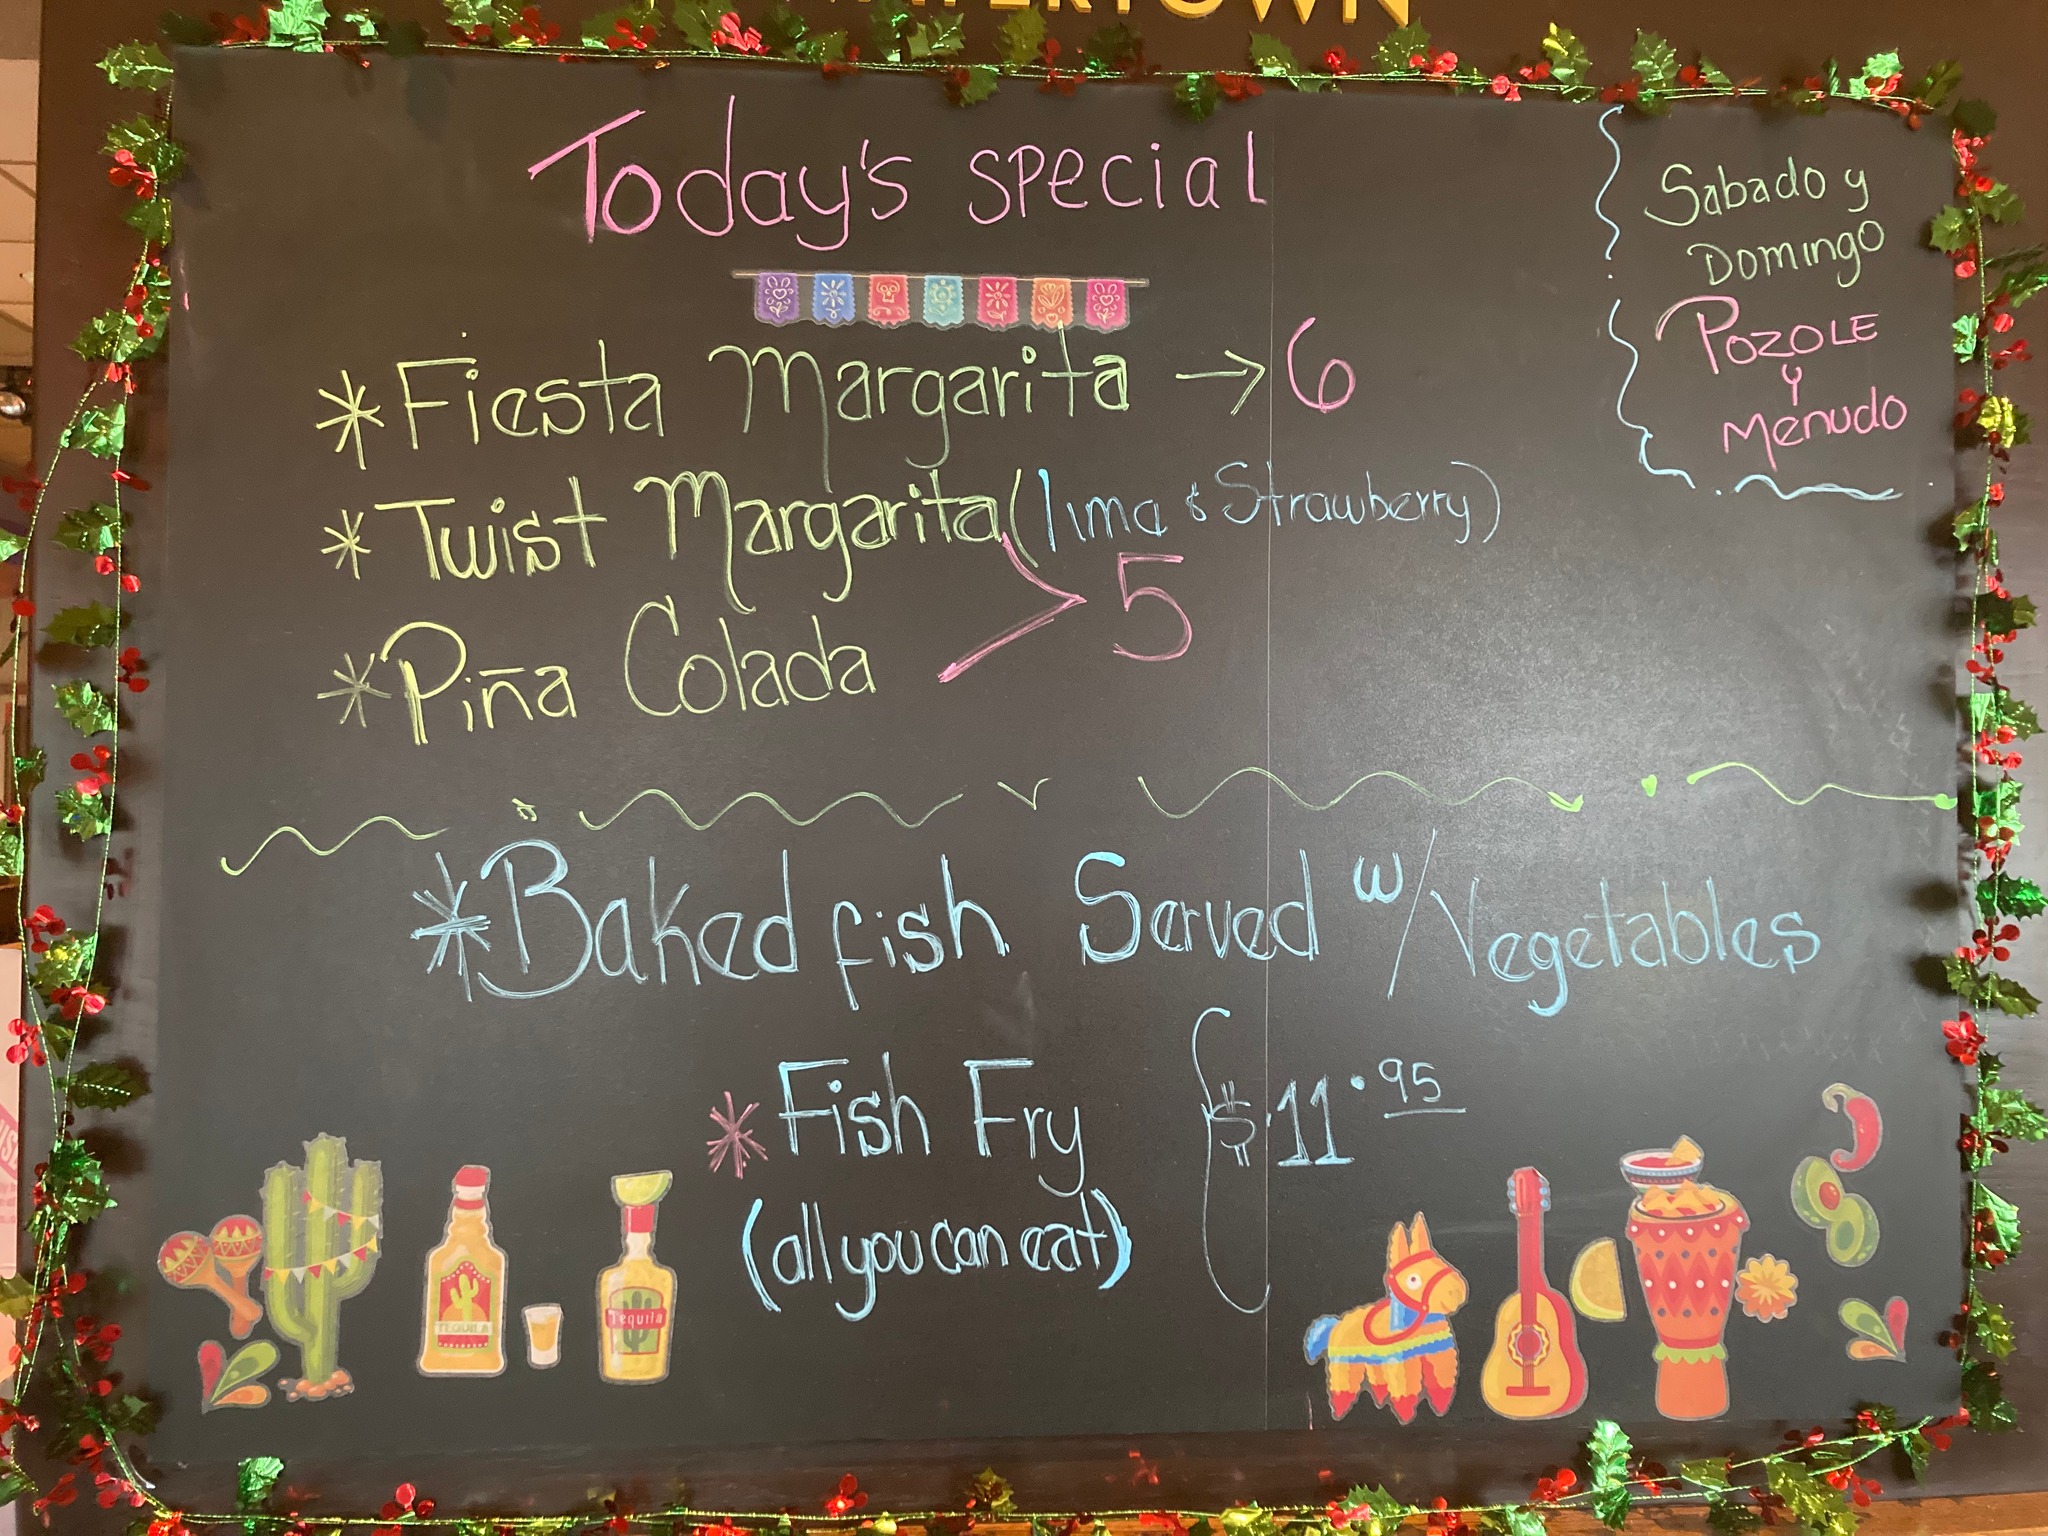 Today's special
*Fiesta Margarita → 6
*Twist Margarita (lima & Strawberry)
*Piña Colada > 5
Sabado y
Domingo
POZOLE
y
Menudo
*Baked fish Served w/Vegetables
*Fish Fry
(all you can eat)
$11.95
TEQUILA
Tequila